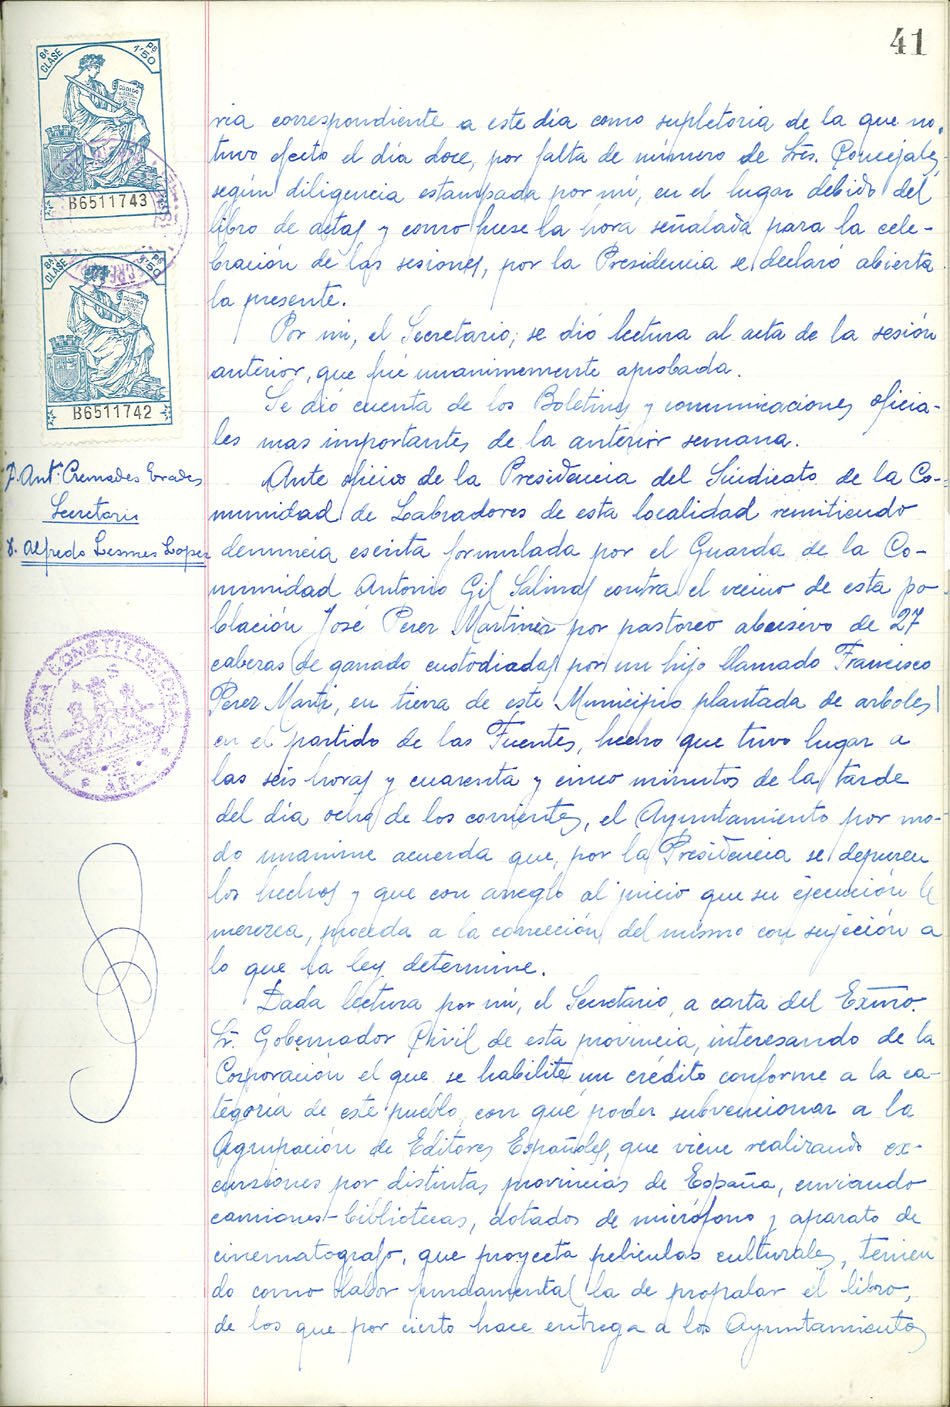 41
8ª CLASE
Pts 1'50
B6511743
8ª CLASE
Pts 1'50
B6511742
D. Antº Cremades Erades
Secretario
D. Alfredo Lesmes Lopez
ALCALDIA CONSTITUCIONAL
ria correspondiente a este dia como supletoria de la que no
tuvo efecto el día doce, por falta de número de Sres. Concejales,
según diligencia estampada por mí, en el lugar debido del
libro de actas y como fuese la hora señalada para la cele-
bración de las sesiones, por la Presidencia se declaró abierta
la presente.
Por mi, el Secretario, se dió lectura al acta de la sesión
anterior, que fué unanimemente aprobada.
Se dió cuenta de los Boletines y comunicaciones oficia-
les mas importantes de la anterior semana.
Ante oficio de la Presidencia del Sindicato de la Co-
munidad de Labradores de esta localidad remitiendo
denuncia escrita formulada por el Guarda de la Co-
munidad Antonio Gil Salinas contra el vecino de esta po-
blación José Perez Martinez por pastoreo abusivo de 27
cabezas de ganado custodiadas por un hijo llamado Francisco
Perez Marti, en tierra de este Municipio plantada de arboles
en el partido de las Fuentes, hecho que tuvo lugar a
las seis horas y cuarenta y cinco minutos de la tarde
del día ocho de los corrientes, el Ayuntamiento por mo-
do unanime acuerda que, por la Presidencia se depuren
los hechos y que con arreglo al juicio que su ejecución le
merezca, proceda a la corrección del mismo con sujeción a
lo que la ley determine.
Dada lectura por mi, el Secretario, a carta del Exmo.
Sr. Gobernador Civil de esta provincia, interesando de la
Corporación el que se habilite un crédito conforme a la ca-
tegoria de este pueblo, con qué poder subvencionar a la
Agrupación de Editores Españoles, que viene realizando ex-
cursiones por distintas provincias de España, enviando
camiones-bibliotecas, dotados de micrófono y aparato de
cinematografo, que proyecta peliculas culturales, tenien
do como labor fundamental la de propalar el libro,
de los que por cierto hace entrega a los Ayuntamientos